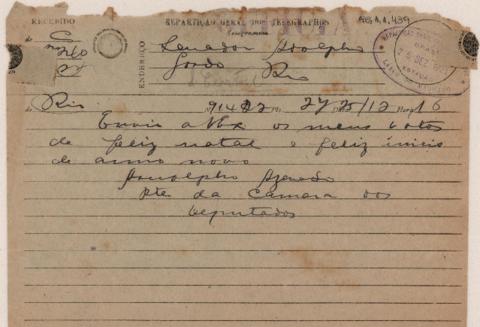 RECEBIDO
REPARTIÇÃO GERAL DOS TELEGRAPHOS
Telegramma
AG.A.A.439
de C
260
ENDEREÇO
Senador Adolpho
Gordo Rio
DEZ
de Rio 91422 27 25/12 16
Envio a Vex os meus votos
de feliz natal e feliz inicio
de anno novo
Azevedo
Pte da Camara dos
Deputados